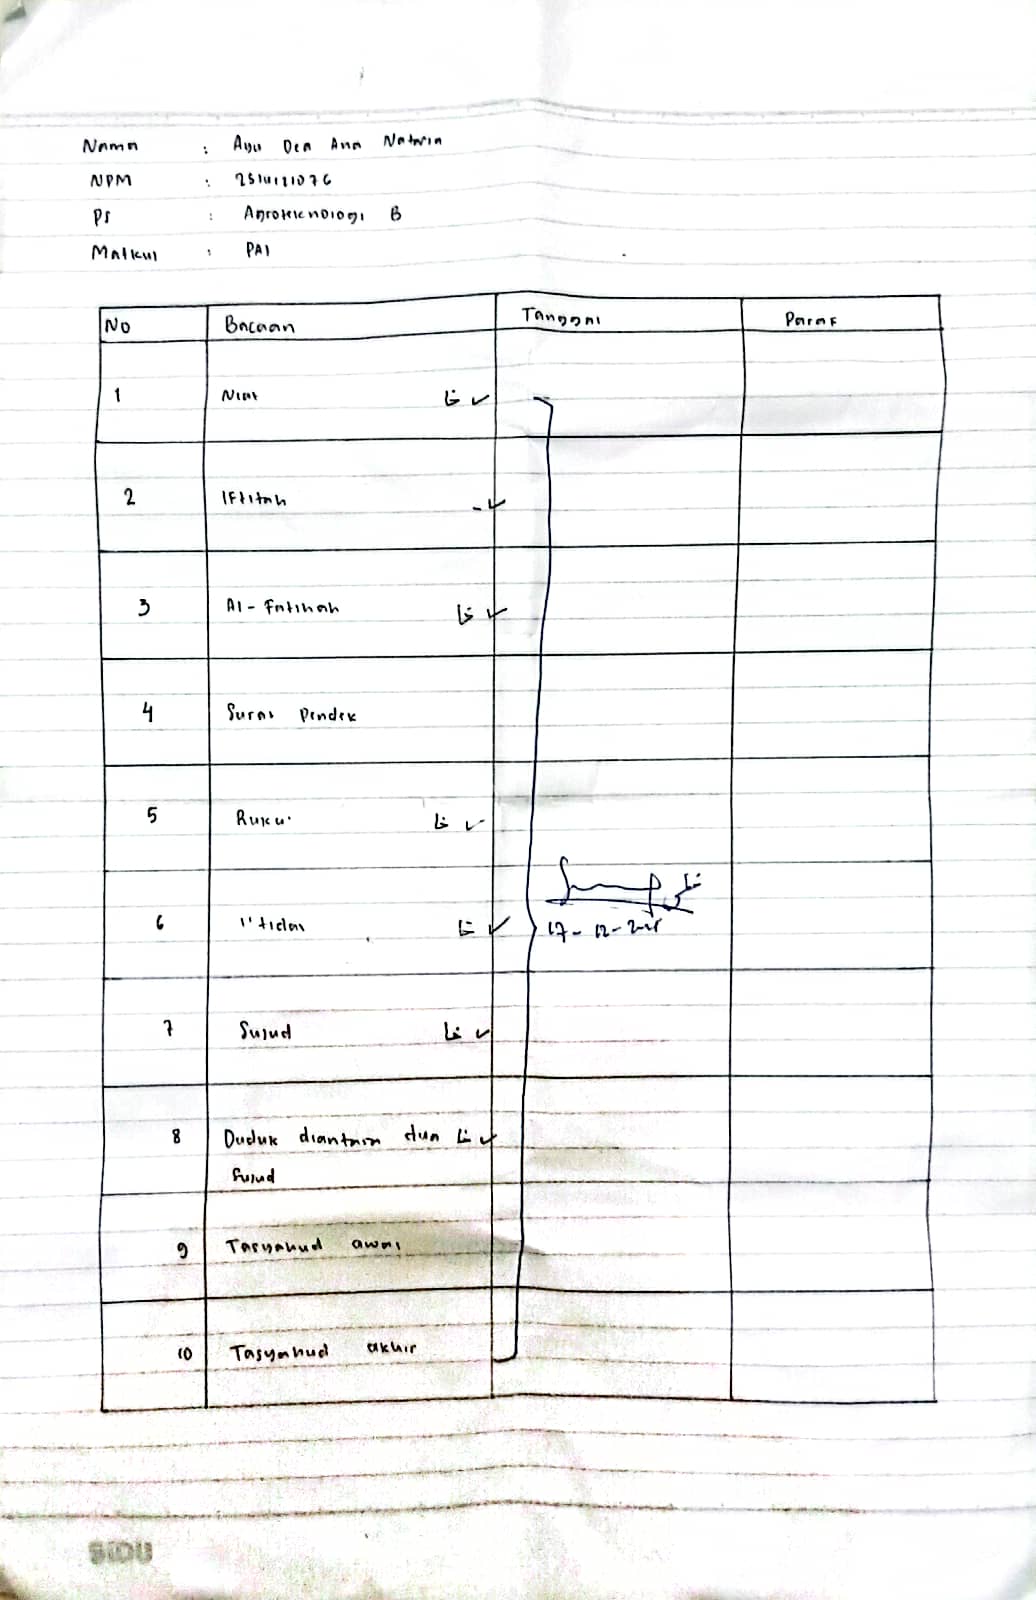 Nama : Ayu Dea Ana Natasia
NPM : 2510121076
PS : Agroteknologi B
Matkul : PAI
No Bacaan Tanggal Paraf
1 Niat ✓
2 Iftitah - ✓
3 Al-Fatihah ✓
4 Surat Pendek
5 Ruku' ✓
6 I'tidal ✓
17-12-2025
7 Sujud ✓
8 Duduk diantara dua ✓
Sujud
9 Tasyahud awal
10 Tasyahud akhir
SIDU